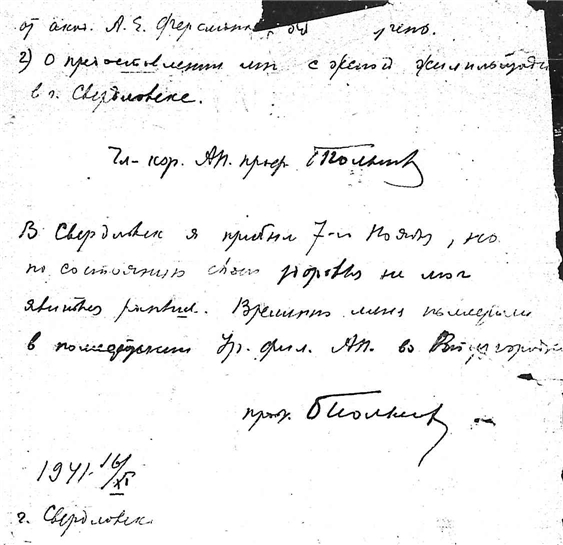 от акад. А. Е. Ферсмана,
2) О предоставлении мне с женой жилплощади
в г. Свердловске.
Чл-кор. АН. проф. БПолынов
В Свердловск я прибыл 7-го Ноября, но
по состоянию своего здоровья не мог
явиться раньше. Временно меня поместили
в помещении Ур. фил. АН. во
проф. БПолынов
1941 16/XI
г. Свердловск